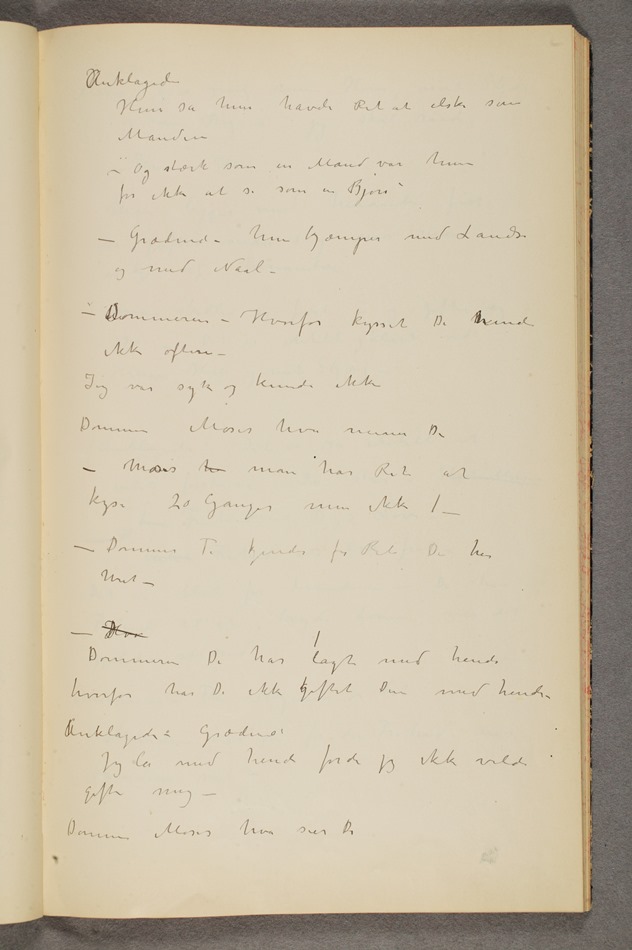 Anklagede
Hun sa hun havde Ret at elske som
Manden
– Og stærk som en Mand var hun
for ikke at si som en Bjørn
– Grædende – hun kjæmper med Landse
og med Naal –
– Dommeren – Hvorfor kysset De hende
ikke oftere –
Jeg var syk og kunde ikke
Dommeren Moses hva mener De
– Moses man har Ret at
kysse 20 Ganger men ikke 1 –
– Dommer Ti kjendes for Ret De har
Uret –
–
Dommeren De har lagt med hende
hvorfor har De ikke giftet Dem med hende
Anklagede Grædende
Jeg la med hende fordi jeg ikke vilde
gifte mig –
Dommeren Moses hva sier De